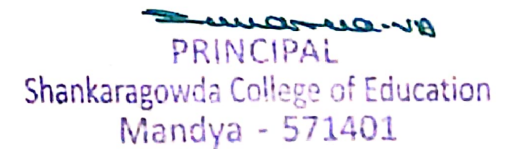 PRINCIPAL
Shankaragowda College of Education
Mandya - 571401